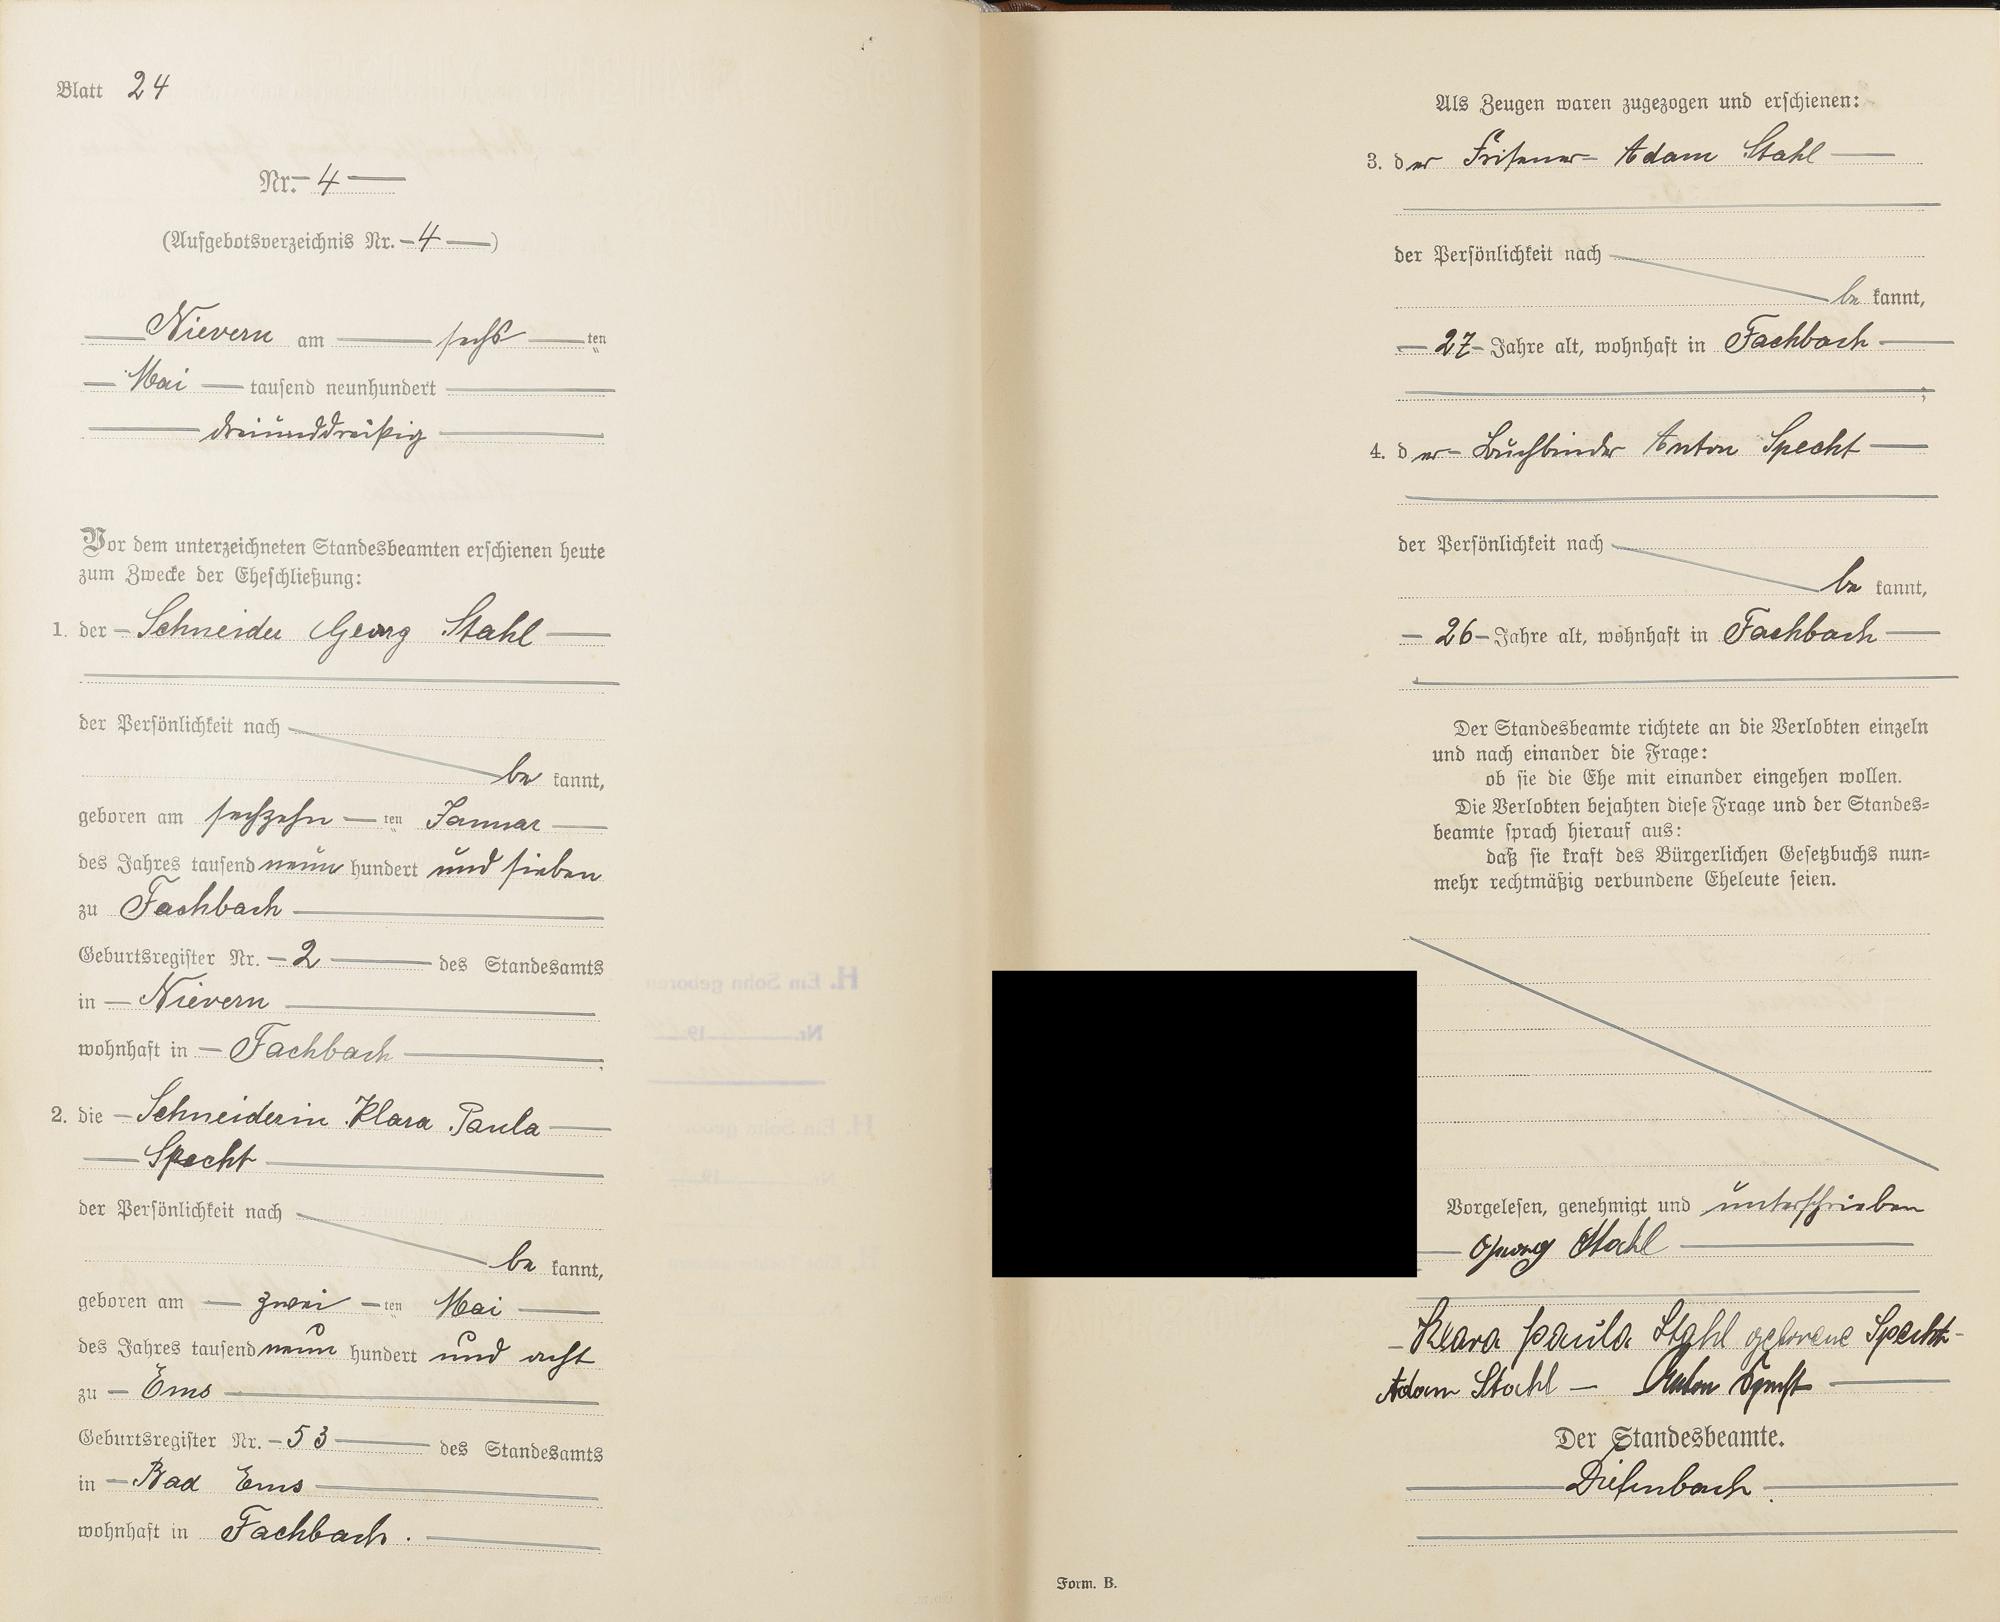 Blatt 24
Nr. 4
(Aufgebotsverzeichnis Nr. 4)
Nievern am sechs ten
Mai tausend neunhundert
dreiunddreißig
Vor dem unterzeichneten Standesbeamten erschienen heute
zum Zwecke der Eheschließung:
1. der Schneider Georg Stahl
der Persönlichkeit nach
be kannt,
geboren am sechzehn ten Januar
des Jahres tausend neun hundert und sieben
zu Fachbach
Geburtsregister Nr. 2 des Standesamts
in Nievern
wohnhaft in Fachbach
2. die Schneiderin Klara Paula
Specht
der Persönlichkeit nach
be kannt,
geboren am zwei ten Mai
des Jahres tausend neun hundert und acht
zu Ems
Geburtsregister Nr. 53 des Standesamts
in Bad Ems
wohnhaft in Fachbach.
Als Zeugen waren zugezogen und erschienen:
3. der Friseur Adam Stahl
der Persönlichkeit nach
be kannt,
27 Jahre alt, wohnhaft in Fachbach
;
4. der Buchbinder Anton Specht
der Persönlichkeit nach
be kannt,
26 Jahre alt, wohnhaft in Fachbach
Der Standesbeamte richtete an die Verlobten einzeln
und nach einander die Frage:
ob sie die Ehe mit einander eingehen wollen.
Die Verlobten bejahten diese Frage und der Standes=
beamte sprach hierauf aus:
daß sie kraft des Bürgerlichen Gesetzbuchs nun=
mehr rechtmäßig verbundene Eheleute seien.
Vorgelesen, genehmigt und unterschrieben
Georg Stahl
Klara Paula Stahl geborene Specht
Adam Stahl – Anton Specht
Der Standesbeamte.
Diefenbach.
Form. B.